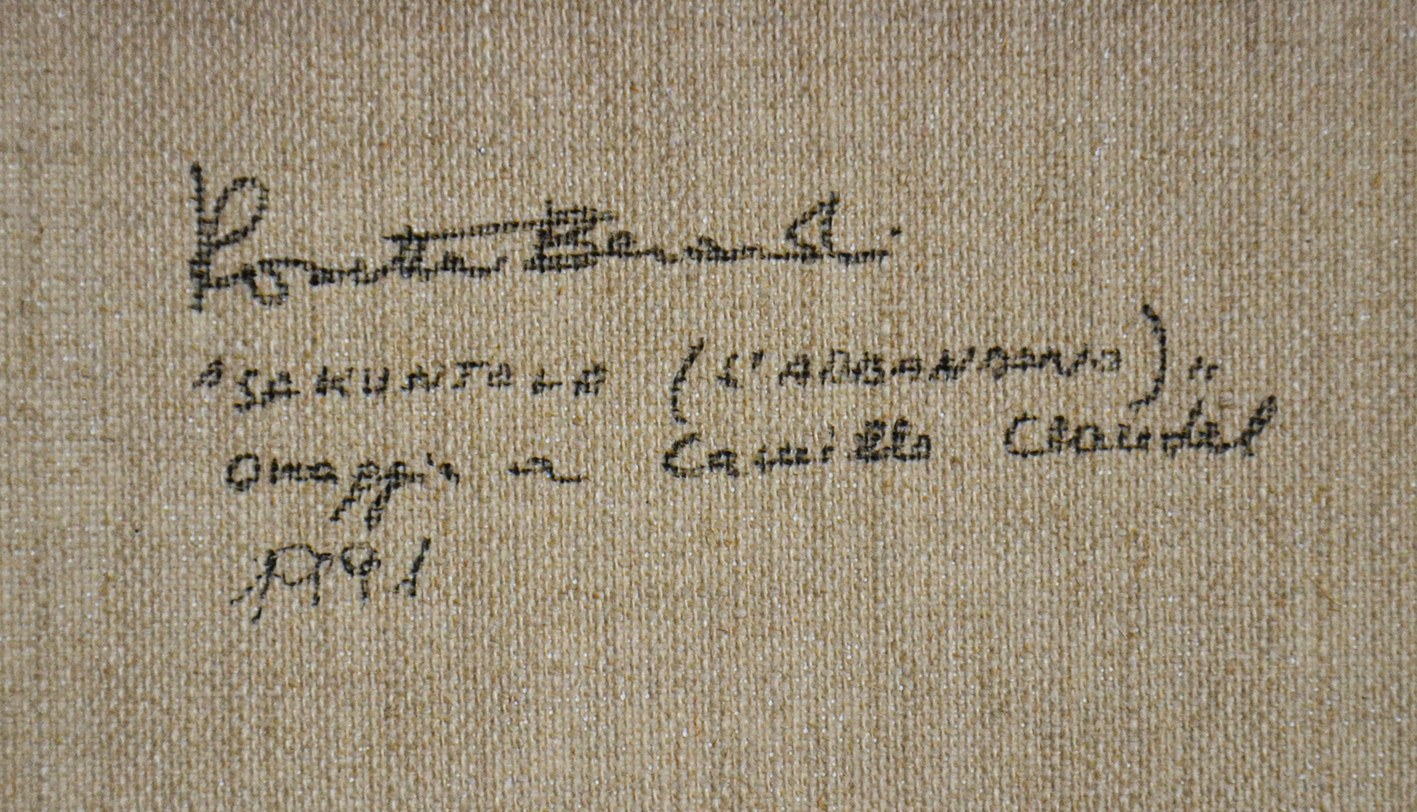 "SAKUNTALA (L'ABBANDONO)"
Omaggio a Camille Claudel
1991